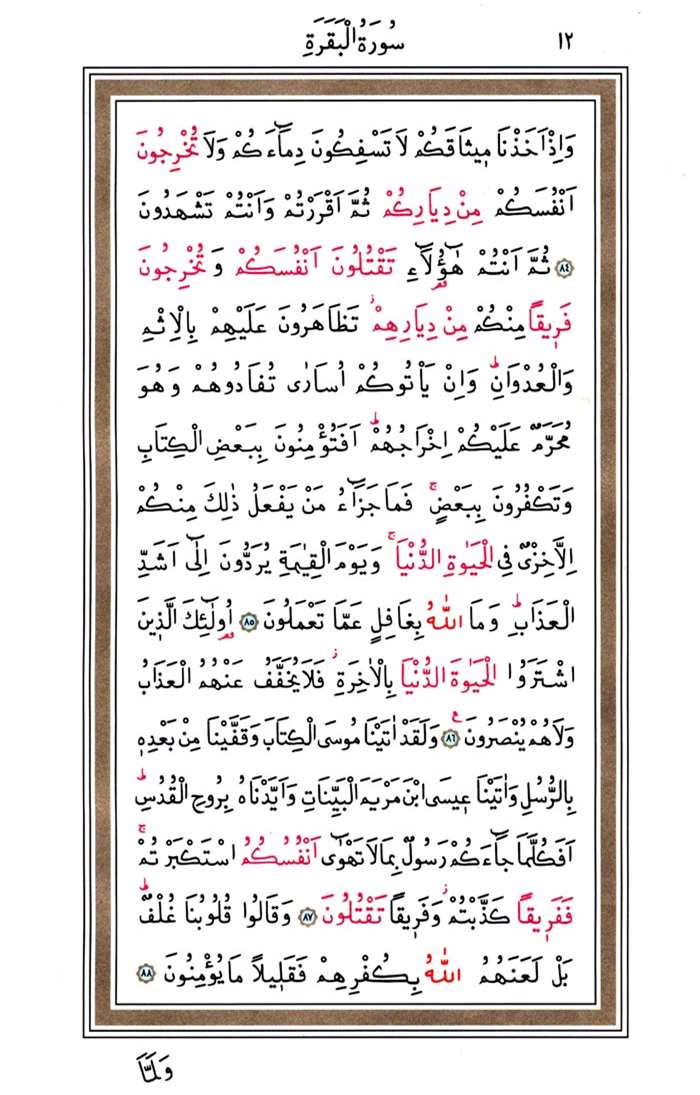 ١٢ سُورَةُ الْبَقَرَةِ
وَاِذْ اَخَذْنَا مٖيثَاقَكُمْ لَا تَسْفِكُونَ دِمَٓاءَكُمْ وَلَا تُخْرِجُونَ
اَنْفُسَكُمْ مِنْ دِيَارِكُمْ ثُمَّ اَقْرَرْتُمْ وَاَنْتُمْ تَشْهَدُونَ
﴿٨٤﴾ ثُمَّ اَنْتُمْ هٰٓؤُ۬لَٓاءِ تَقْتُلُونَ اَنْفُسَكُمْ وَتُخْرِجُونَ
فَرٖيقاً مِنْكُمْ مِنْ دِيَارِهِمْۘ تَظَاهَرُونَ عَلَيْهِمْ بِالْاِثْمِ
وَالْعُدْوَانِؕ وَاِنْ يَأْتُوكُمْ اُسَارٰى تُفَادُوهُمْ وَهُوَ
مُحَرَّمٌ عَلَيْكُمْ اِخْرَاجُهُمْؕ اَفَتُؤْمِنُونَ بِبَعْضِ الْكِتَابِ
وَتَكْفُرُونَ بِبَعْضٍۚ فَمَا جَزَٓاءُ مَنْ يَفْعَلُ ذٰلِكَ مِنْكُمْ
اِلَّا خِزْيٌ فِي الْحَيٰوةِ الدُّنْيَاۚ وَيَوْمَ الْقِيٰمَةِ يُرَدُّونَ اِلٰٓى اَشَدِّ
الْعَذَابِؕ وَمَا اللّٰهُ بِغَافِلٍ عَمَّا تَعْمَلُونَ ﴿٨٥﴾ اُو۬لٰٓئِكَ الَّذٖينَ
اشْتَرَوُا الْحَيٰوةَ الدُّنْيَا بِالْاٰخِرَةِؗ فَلَا يُخَفَّفُ عَنْهُمُ الْعَذَابُ
وَلَا هُمْ يُنْصَرُونَ ﴿٨٦﴾ وَلَقَدْ اٰتَيْنَا مُوسَى الْكِتَابَ وَقَفَّيْنَا مِنْ بَعْدِهٖ
بِالرُّسُلِ وَاٰتَيْنَا عٖيسَى ابْنَ مَرْيَمَ الْبَيِّنَاتِ وَاَيَّدْنَاهُ بِرُوحِ الْقُدُسِؕ
اَفَكُلَّمَا جَٓاءَكُمْ رَسُولٌ بِمَا لَا تَهْوٰٓى اَنْفُسُكُمُ اسْتَكْبَرْتُمْۚ
فَفَرٖيقاً كَذَّبْتُمْؗ وَفَرٖيقاً تَقْتُلُونَ ﴿٨٧﴾ وَقَالُوا قُلُوبُنَا غُلْفٌؕ
بَلْ لَعَنَهُمُ اللّٰهُ بِكُفْرِهِمْ فَقَلٖيلاً مَا يُؤْمِنُونَ ﴿٨٨﴾
وَلَمَّا